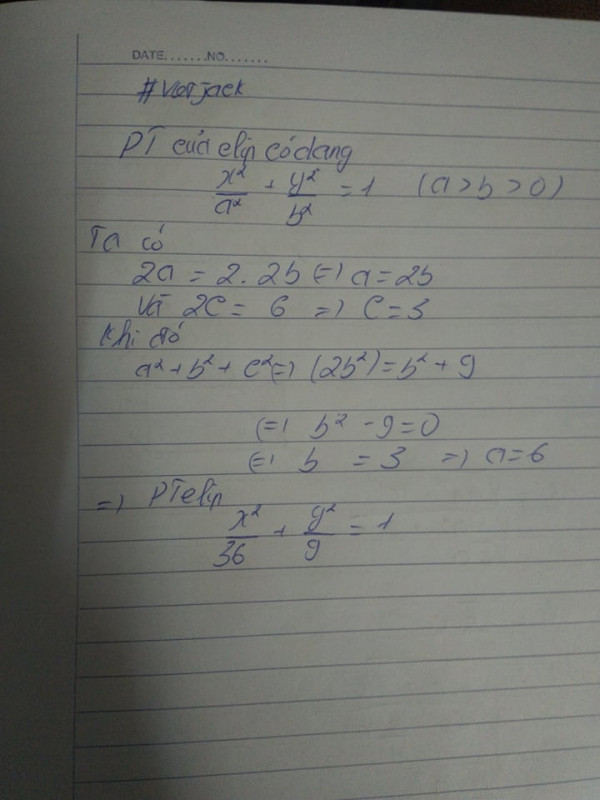 DATE.......NO.......
#Vietjack
PT của elip có dạng
x²/a² + y²/b² = 1 (a > b > 0)
Ta có
2a = 2.2b (=) a = 2b
Và 2C = 6 =) C = 3
Khi đó
a² + b² + c² (=) (2b²) = b² + 9
(=) b² - 9 = 0
(=) b = 3 =) a = 6
=) PT elip
x²/36 + y²/9 = 1